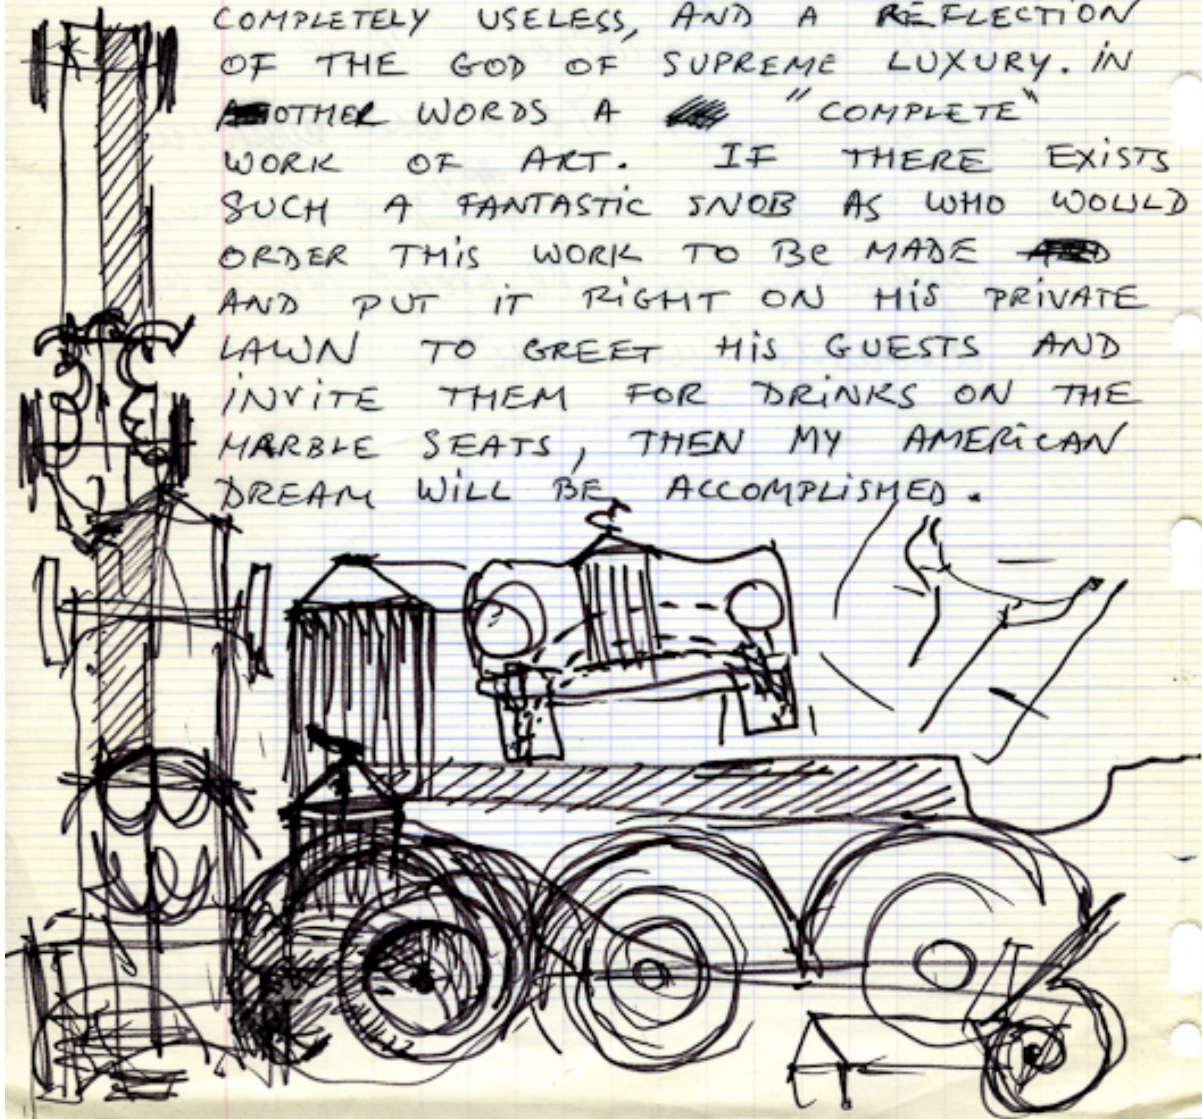 COMPLETELY USELESS, AND A REFLECTION
OF THE GOD OF SUPREME LUXURY. IN
OTHER WORDS A "COMPLETE"
WORK OF ART. IF THERE EXISTS
SUCH A FANTASTIC SNOB AS WHO WOULD
ORDER THIS WORK TO BE MADE
AND PUT IT RIGHT ON HIS PRIVATE
LAWN TO GREET HIS GUESTS AND
INVITE THEM FOR DRINKS ON THE
MARBLE SEATS, THEN MY AMERICAN
DREAM WILL BE ACCOMPLISHED.